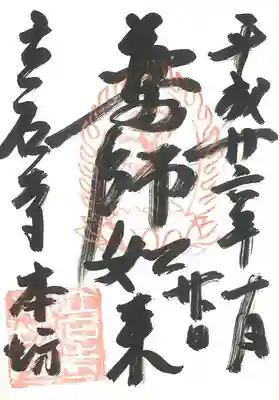 平成廿二年十一月
廿日
薬師如来
立石寺本坊